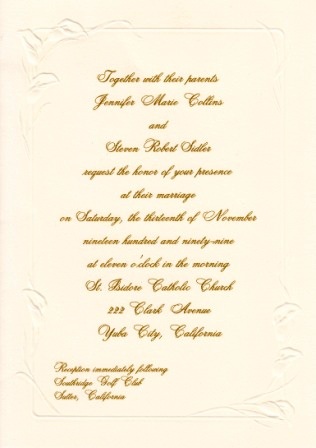 Together with their parents
Jennifer Marie Collins
and
Steven Robert Sutler
request the honor of your presence
at their marriage
on Saturday, the thirteenth of November
nineteen hundred and ninety-nine
at eleven o'clock in the morning
St. Isidore Catholic Church
222 Clark Avenue
Yuba City, California
Reception immediately following
Southridge Golf Club
Sutter, California